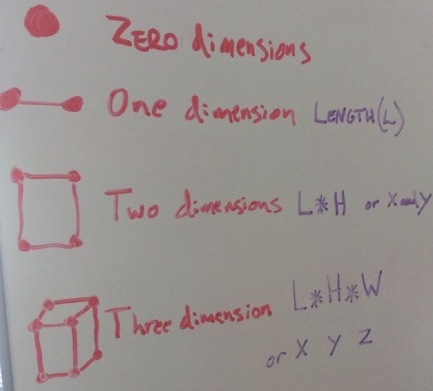 ZERO dimensions
One dimension LENGTH(L)
Two dimensions L*H or X and Y
Three dimension L*H*W
or X Y Z